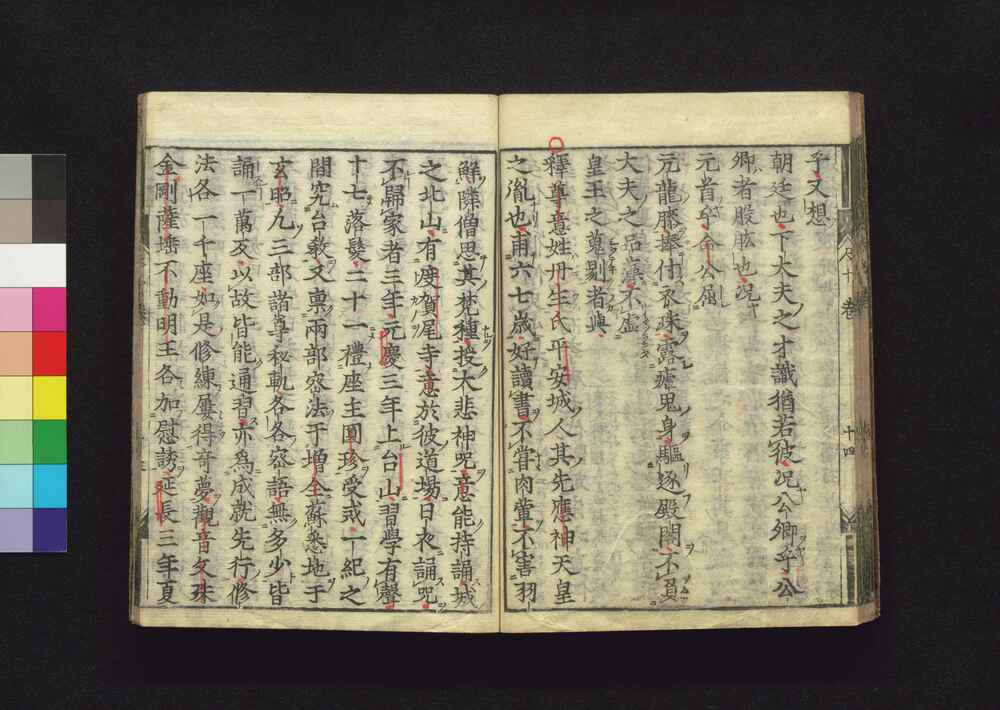 乎又想
朝廷也下大夫之才識猶若彼況公卿乎公
卿者股肱也況
元首乎余公屈
元龍臍捿付丞珠露瘧鬼身驅逐殿閣不負
大夫之不虛
皇王之蒭者歟
釋尊意姓丹生氏平安城人其先應神天皇
之胤也甫六七歲好讀書不甞肉葷不害羽
鮮隣僧思其梵種授大悲神呪意能持誦城
之北山有度賀尾寺意於彼道場日夜誦呪
不歸家者三年元慶三年上台山習學有聲
十七落髮二十一禮座主圓珍受戒一紀之
間究台敎又稟兩部密法于增全蘇悉地于
玄昭凡三部諸尊秘軌各各密語無多少皆
誦一萬反以故皆能通習亦爲成就先行修
法各一千座如是修練屢得奇夢觀音文殊
金剛薩埵不動明王各加慰誘延長三年夏